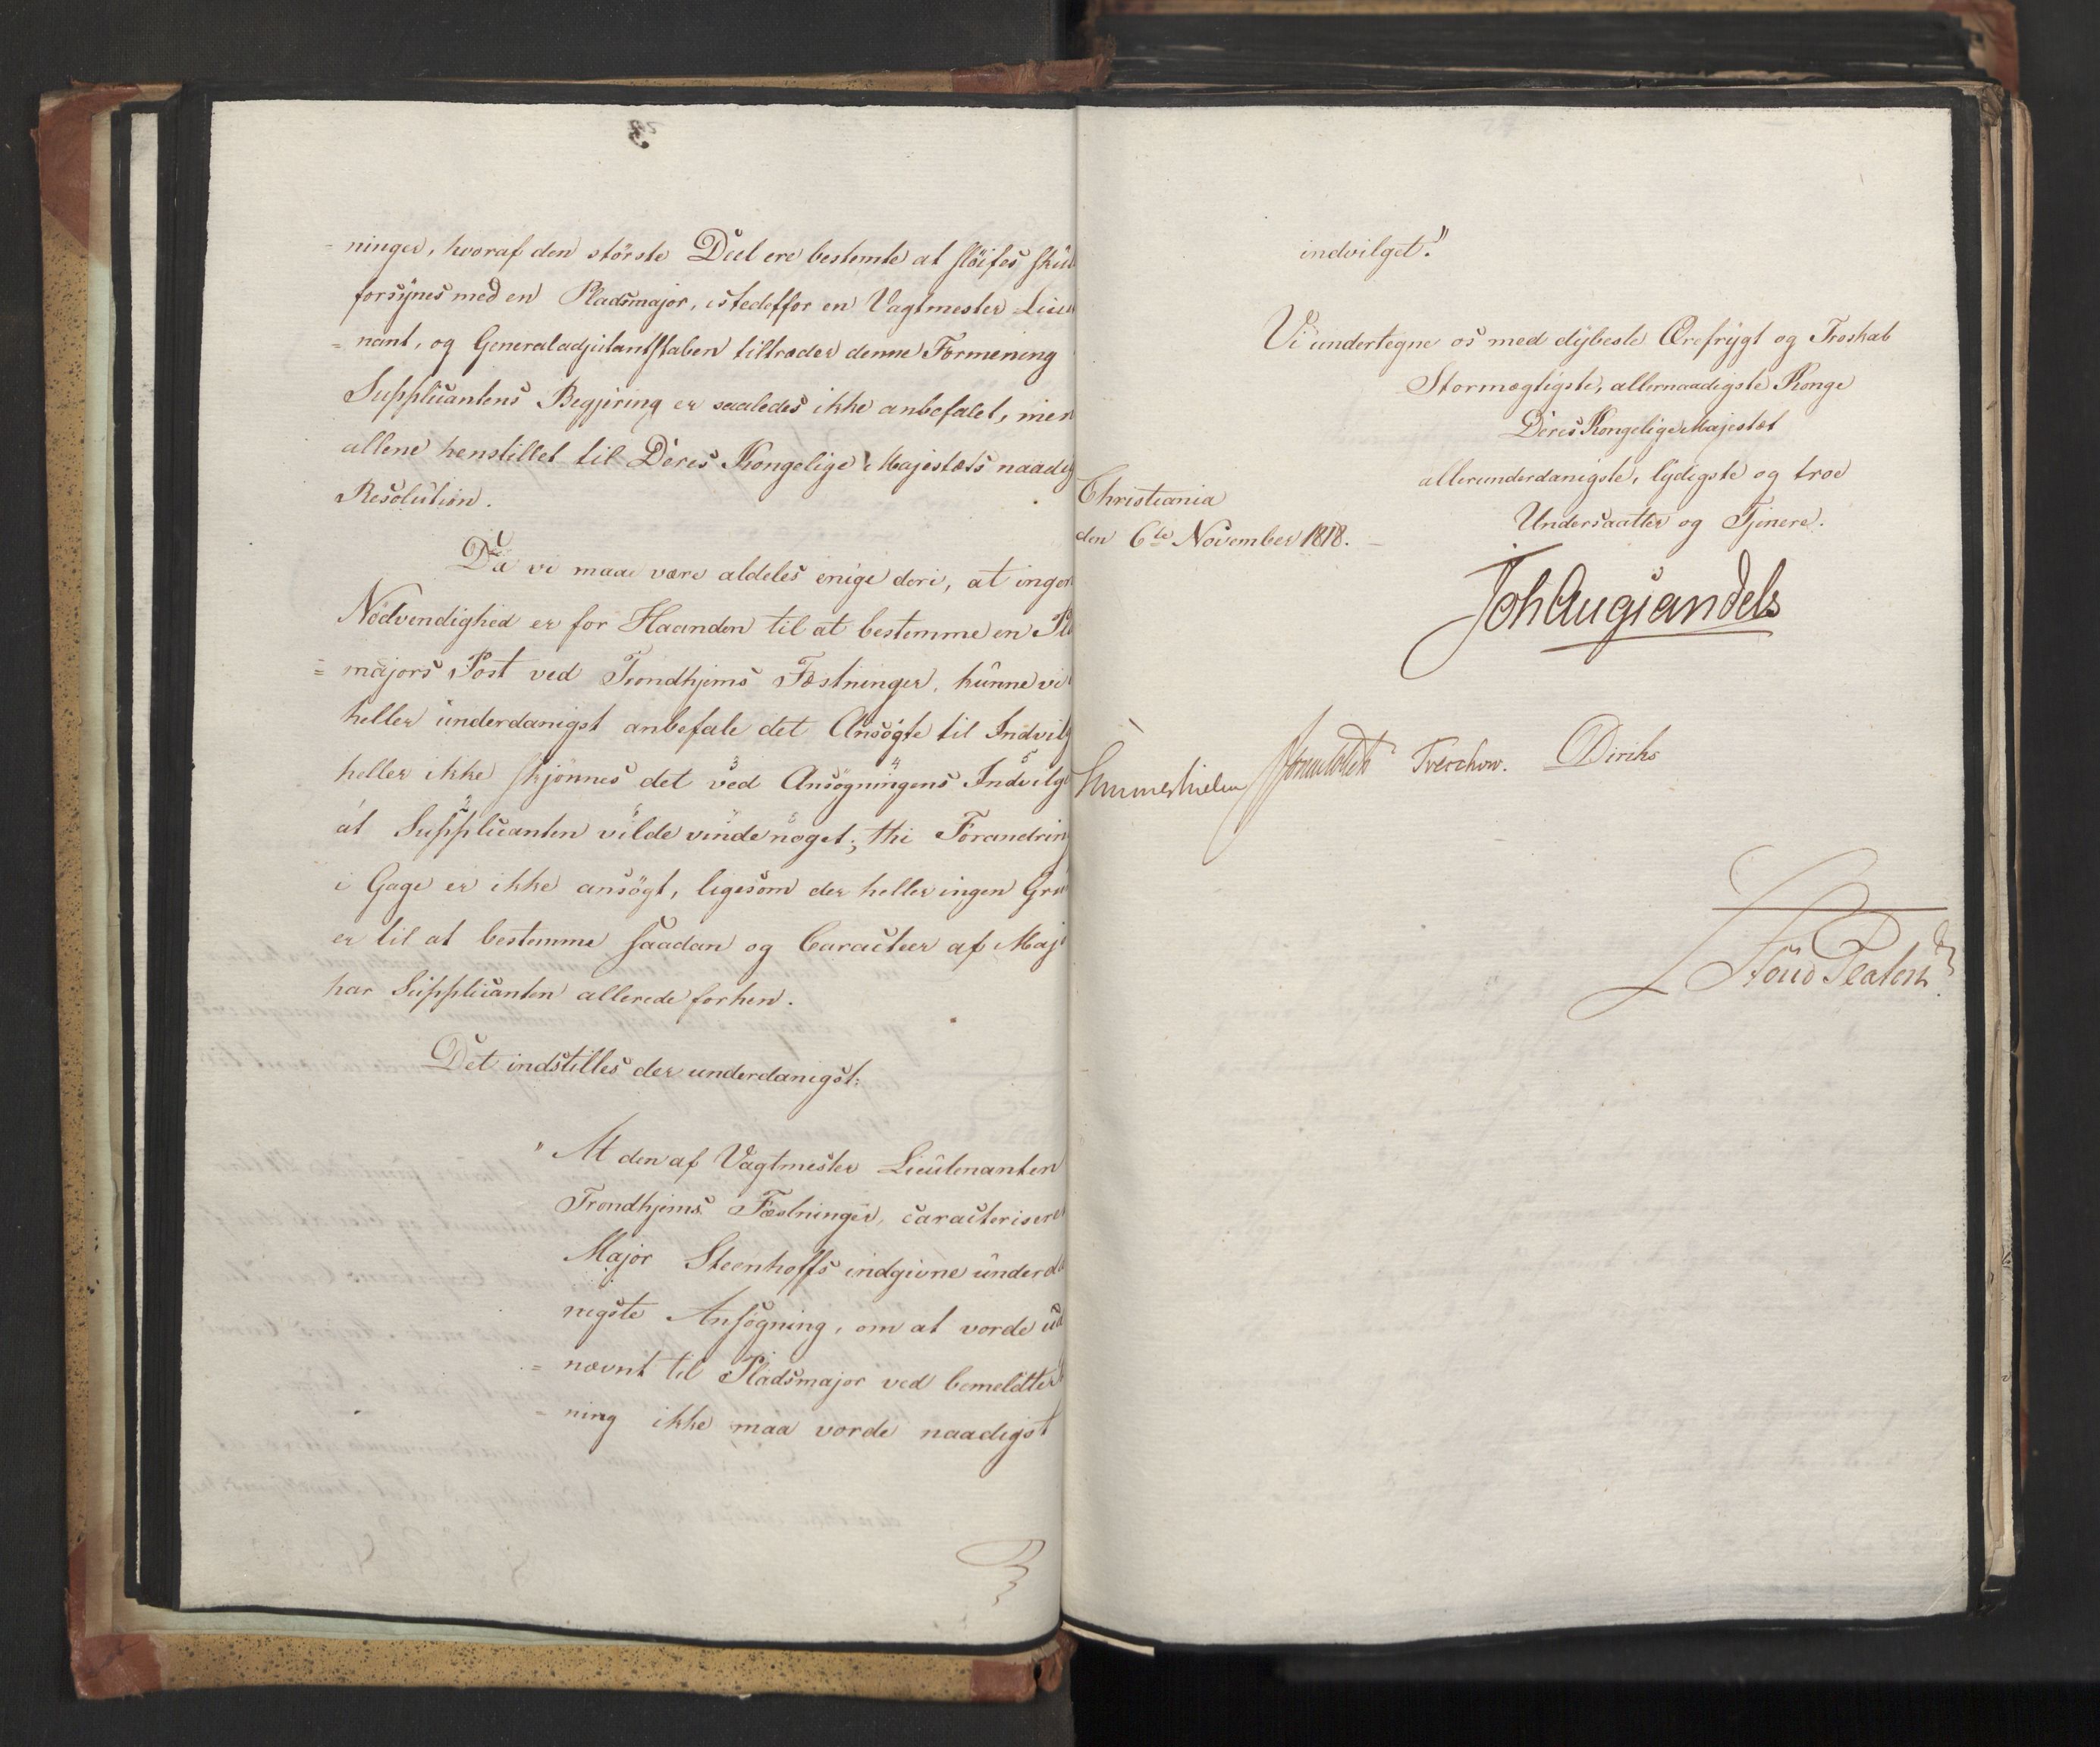 = ninger, hvoraf den störste Deel ere bestemte at slöifes skul
forsynes med en Pladsmajor, istedetfor en Vagtmester Lieu
= nant, og Generaladjutantstaben tiltræder denne Formening
Supplicantens Begjering er saaledes ikke anbefalet, men
allene henstillet til Deres Kongelige Majestæts naadig
Resolution.
Da vi maae være aldeles enige deri, at ingen
Nödvendighed er for Haanden til at bestemme en Pla
= majors Post ved Trondhjems Fæstninger, kunne vi
heller underdanigst anbefale det Ansögte til Indvilg
heller ikke skjönnes det ved Ansögningens Indvilge
at Supplicanten vilde vinde noget; thi Forandring
i Gage er ikke ansögt, ligesom der heller ingen Gru
er til at bestemme saadan og Caracteer af Majo
har Supplicanten allerede forhen.
Det indstilles der underdanigst:
" At den af Vagtmester Lieutenanten
Trondhjems Fæstninger, caracteriseret
Major Steenhoffs indgivne underda
nigste Ansögning, om at vorde ud
= nævnt til Pladsmajor ved bemeldte
- ning ikke maa vorde naadigst
indvilget."
Vi undertegne os med dybeste Ærefrygt og Troskab
Stormægtigste, allernaadigste Konge
Deres Kongelige Majestæt
allerunderdanigste, lydigste og troe
Undersaatter og Tjenere.
Christiania
den 6te November 1818.
Joh Aug Sandels
Sommerhielm Treschow. Diriks